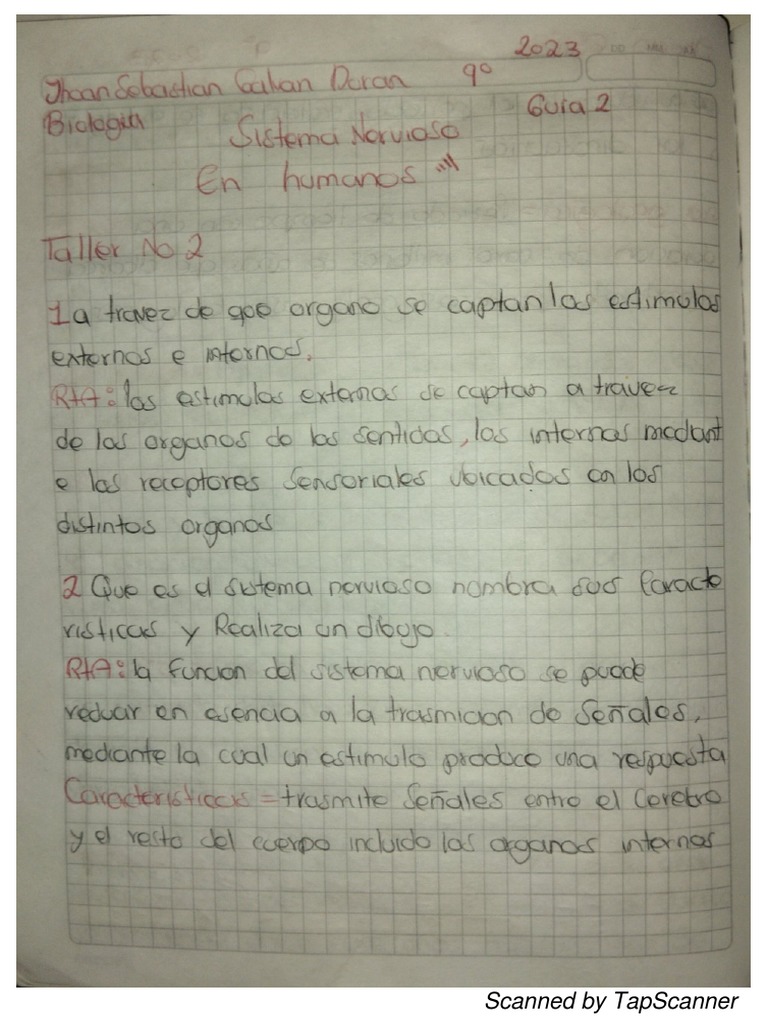 2023
Jhoan Sebastian Galvan Duran 9º
Biologia Guia 2
Sistema Nervioso
En humanos
Taller No 2
1 a travez de que organo se captan los estimulos
externos e internos.
RtA: los estimulos externos se captan a travez
de los organos de los sentidos, los internos mediant
e los receptores sensoriales ubicados en los
distintos organos
2 Que es el sistema nervioso nombra sus Caracte
risticas y Realiza un dibujo.
RtA: la funcion del sistema nervioso se puede
reducir en esencia a la trasmicion de Señales,
mediante la cual un estimulo produce una respuesta
Caracteristicas = trasmite Señales entre el Cerebro
y el resto del cuerpo incluido los organos internos
Scanned by TapScanner